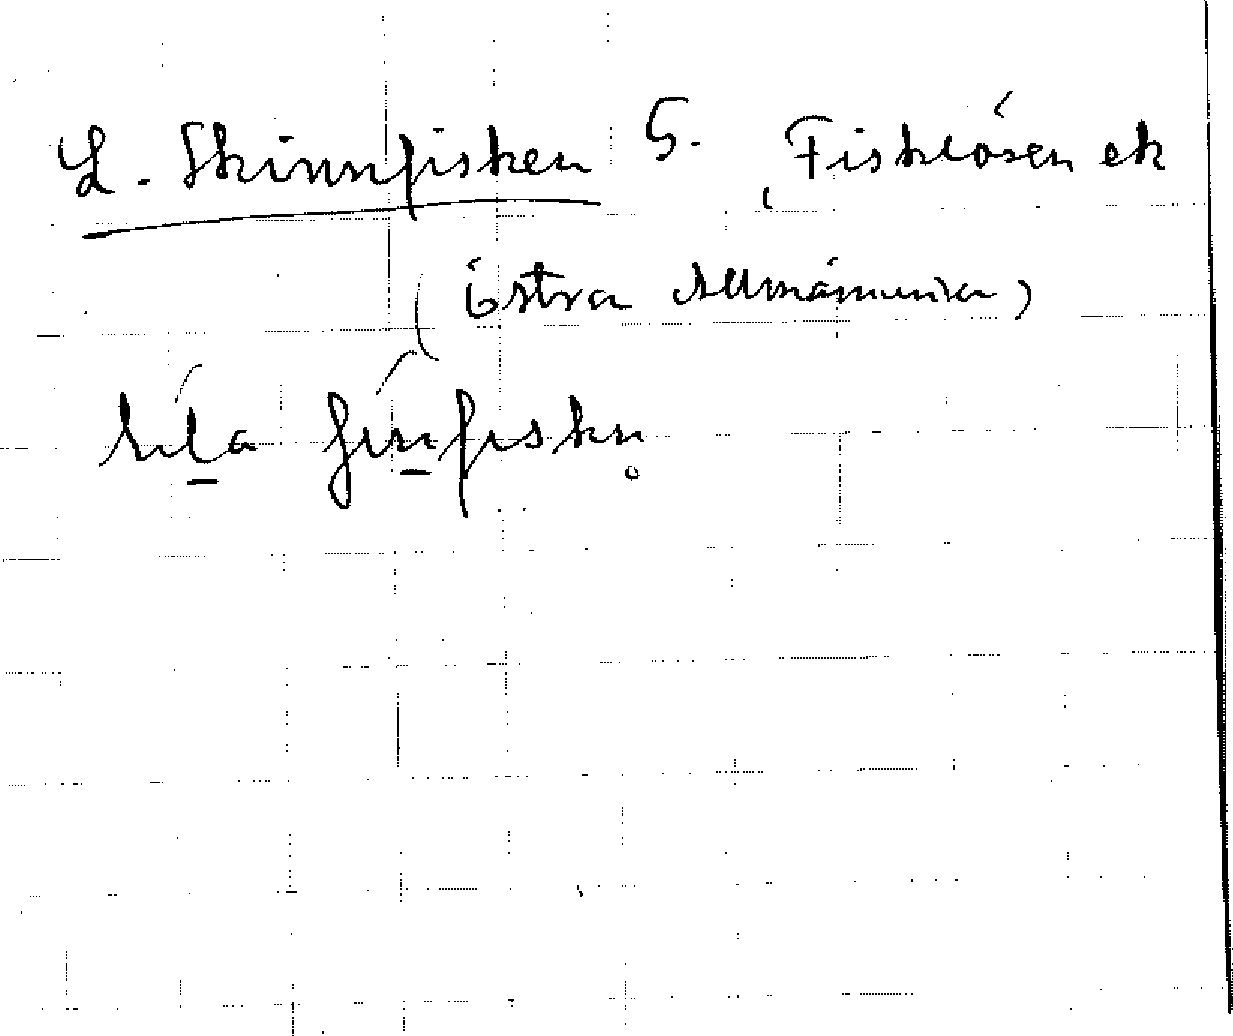 L. Skinnfisken S. Fisklösen ek
(Östra Allmänningen)
lila finfiskn